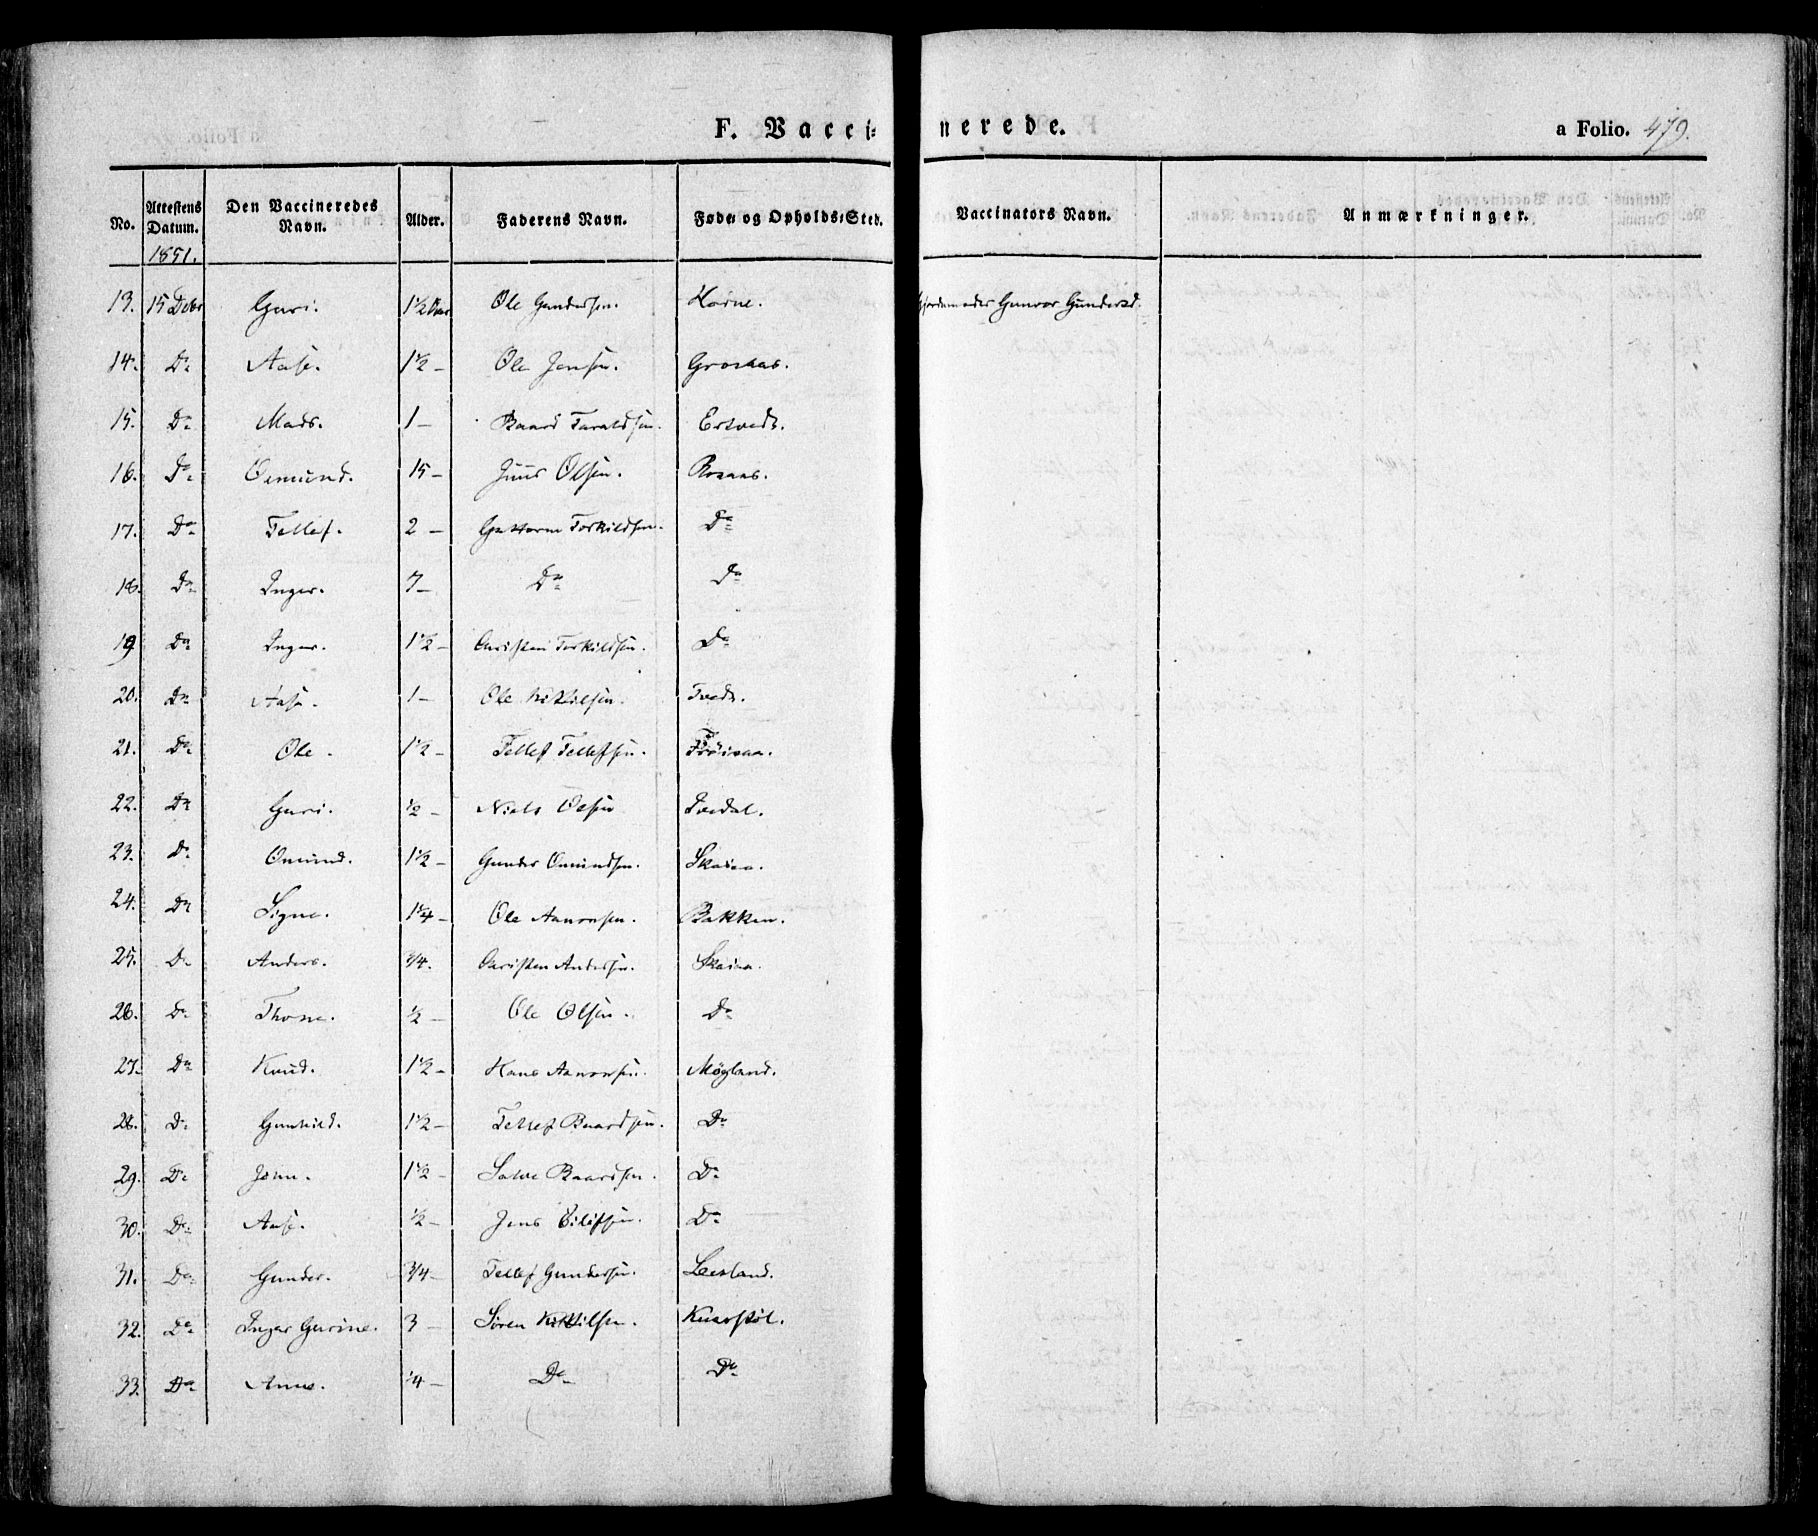 F. Vacci- nerede. a Folio. 479.
No. Attestens Datum. 1851. Den Vaccineredes Navn. Alder. Faderens Navn. Føde- og Opholds-Sted. Vaccinators Navn. Anmærkninger.
13. 15 Debr Guri. 1½ Ole Gundersen. Horne. Gunvor Gundersd.
14. Do Aase. 1½ – Ole Jensen. Grosaas.
15. Do Mads. 1 – Baard Taraldsen. Ertvedt.
16. Do Osmund. 15 – Juus Olsen. Rosaas.
17. Do Tellef. 2 – Guttorm Torkildsen. Do
18. Do Inger. 7 – Do Do
19 Do Inger. 1½ – Christen Torkildsen. Do
20. Do Aase. 1 – Ole Kittilsen. Tvedt.
21. Do Ole. 1½ – Tellef Tellefsen. Frøisaa.
22. Do Guri. ½ – Niels Olsen Tvedal.
23. Do Omund. 1½ – Gunder Omundsen. Skaiaa.
24. Do Signe. 1¾ – Ole Aanonsen. Bakken.
25. Do Anders. ¾. Christen Andersen. Skaiaa.
26. Do Thone. ½ – Ole Olsen. Do
27. Do Knud. 1½ – Hans Aanonsen. Møgland.
28. Do Gunhild. 1½ – Tellef Baardsen. Do
29. Do 1½ – Salve Baardsen. Do
30. Do Aase. ½ – Jens Eilefsen. Do
31. Do Gunder. ¾ – Tellef Gundersen. Leesland.
32. Do Inger Gurine. 3 – Søren Kittilsen.
33. Do Anne. ¼ – Do Do